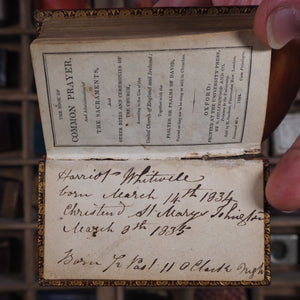 THE BOOK OF
COMMON PRAYER,
And Administration of
THE SACRAMENTS,
AND OTHER
RITES AND CEREMONIES OF
THE CHURCH,
According to the Use of the
United Church of England and Ireland:
Together with the
PSALTER OR PSALMS OF DAVID,
Pointed as they are to be sung or said in Churches.
OXFORD:
PRINTED AT THE UNIVERSITY PRESS,
Harriot Whitwell
born March 14th 1834
Christend St Marys Islington
March 9th 1835
Born ½ Past 11 O Clock